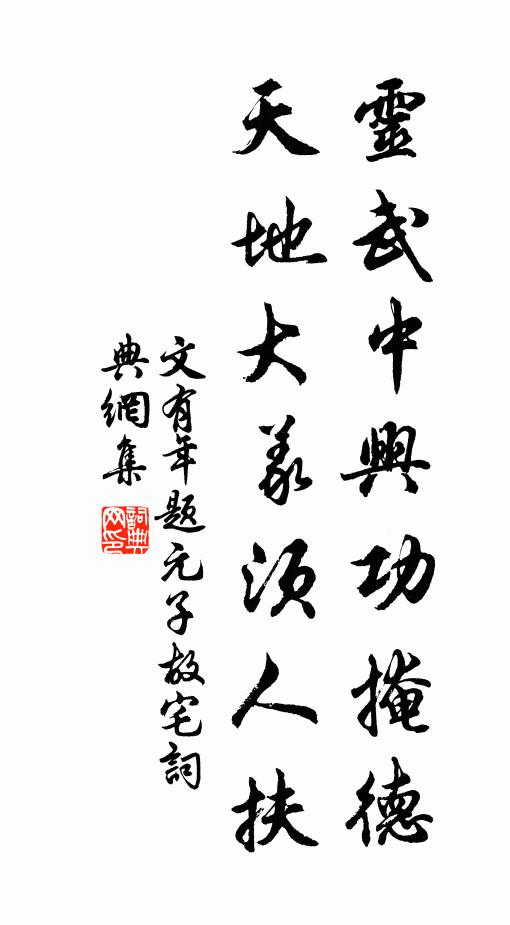 靈武中興功掩德
天地大義須人扶
文有年題元子故宅詞
典網集
詞典
网印